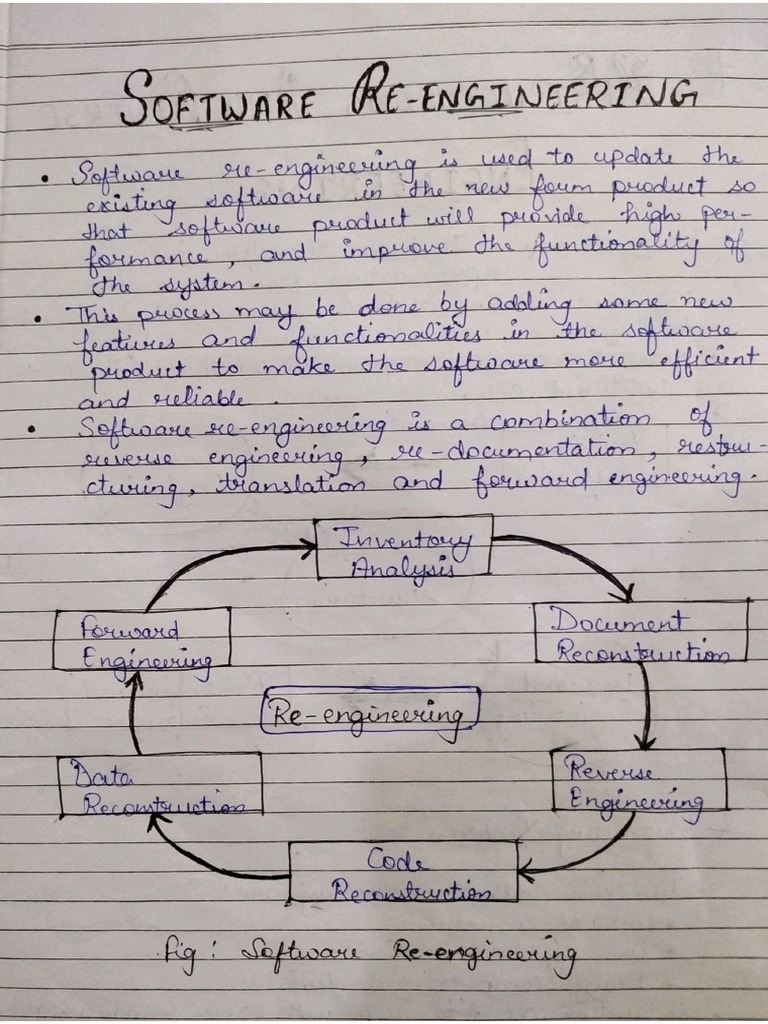 SOFTWARE RE-ENGINEERING
• Software re-engineering is used to update the
existing software in the new form product so
that software product will provide high per-
formance, and improve the functionality of
the system.
• This process may be done by adding some new
features and functionalities in the software
product to make the software more efficient
and reliable.
• Software re-engineering is a combination of
reverse engineering, re-documentation, restru-
cturing, translation and forward engineering.
Inventory
Analysis
Forward
Engineering
Document
Reconstruction
Re-engineering
Data
Reconstruction
Reverse
Engineering
Code
Reconstruction
Fig : Software Re-engineering